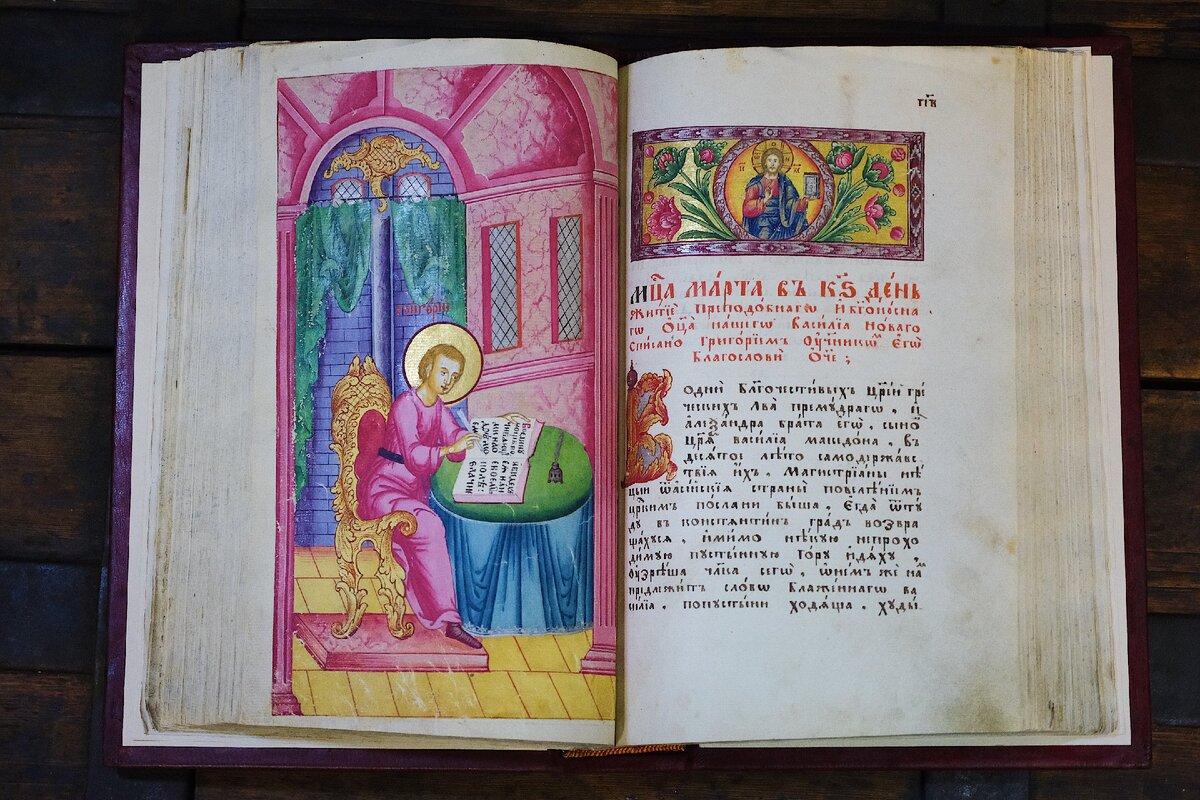 тı҃в
Мц҃а ма́рта въ к҃ѕ де́нь
житїѐ преподо́бнагѡ и҆ бг҃оно́сна
гѡ ѻц҃а̀ нашегѡ васи́лїа но́ваго
списано григо́рїемъ ᲂу҆ченикѡ́мъ єго̀
Благослови ѻ҆́ч҃е ;
одни бл҃гочести́выхъ цр҃їй гре
ческихъ льва̀ премꙋ́драго , и҆
але́ѯандра брата его̀ , сыно
цр҃ѧ̀ василїа македона , въ
десѧтое лѣто самодержавс
твїѧ и҆хъ , Магистрїаны нѣ
цыи ѿасїйскїѧ страны повелѣнїемъ
цр҃кимъ послани быша , Єгда ѿтꙋ
дꙋ въ константинъ градъ возвра
щахꙋсѧ , и҆мимо нѣкꙋю непрохо
димꙋю пꙋстыннꙋю горꙋ идѧхꙋ ,
ᲂу҆зрѣша чл҃ка сего , ѡ҆немъ же на
предлежитъ слово блаженнагѡ ва
силїа , попꙋстыни ходѧща , хꙋды